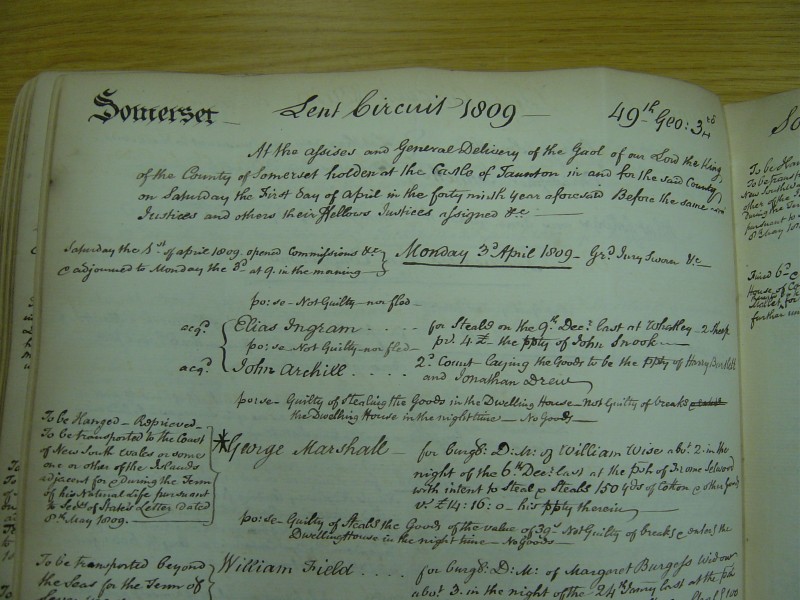 Somerset Lent Circuit 1809 49th Geo: 3rd
At the assises and General Delivery of the Gaol of our Lord the King
of the County of Somerset holden at the Castle of Taunton in and for the said County
on Saturday the First day of April in the forty ninth year aforesaid Before the same
Justices and others their Fellows Justices assigned &c
Saturday the 1st of april 1809. opened Commissions &c
& adjourned to Monday the 3d at 9. in the morning
Monday 3d April 1809 - Grd Jury Sworn &c
po: se - Not Guilty - nor fled
acqd Elias Ingram for Steals on the 9th Decr last at Whatley 2 Sheep
pr. 4£ the ppty of John Snook
po: se - Not Guilty - nor fled
acqd John Archill 2d Count laying the Goods to be the ppty of Harry Bartlett
and Jonathan Drew
po: se - Guilty of Stealing the Goods in the Dwelling House - Not Guilty of breaks
the Dwelling House in the night time - No Goods
To be Hanged - Reprieved -
To be transported to the Coast
of New South Wales or some
one or other of the Islands
adjacent for & during the Term
of his Natural Life pursuant
to Secy of State's Letter dated
8th May 1809.
*George Marshall for burgy: D: H: of William Wise abot 2 in the
night of the 6th Decr last at the psh of Frome Selwood
with intent to Steal & Steals 150 yds of Cotton & other Goods
vs £14:16:0 - his ppty therein
po: se - Guilty of Steals the Goods of the value of 39s Not Guilty of breaks & enters the
Dwelling House in the night time - No Goods
To be transported beyond
the Seas for the Term of
William Field for burgy: D: H: of Margaret Burgess Widow
abot 3. in the night of the 24th Janry last at the psh